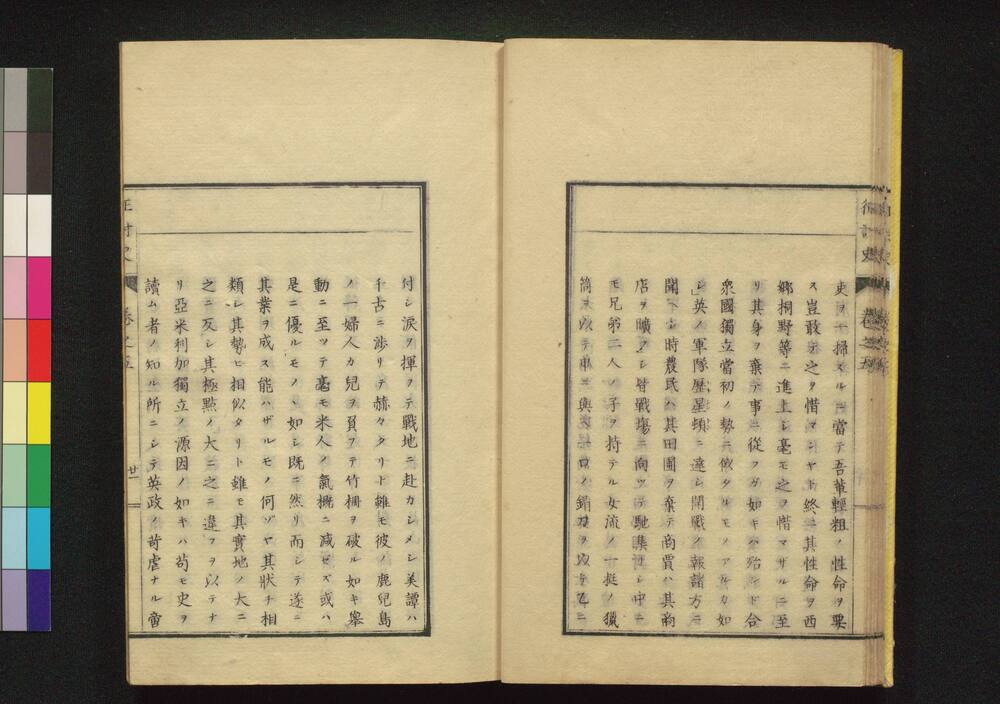 吏ヲ一掃スルニ當テ吾輩輕粗ノ性命ヲ要
ス豈敢テ之ヲ惜マンヤト終ニ其性命ヲ西
郷桐野等ニ進上シ毫モ之ヲ惜マザルニ至
リ其身ヲ棄テ事ニ從フガ如キハ殆ンド合
衆國獨立當初ノ勢ニ似タルモノアルカ如
シ英ノ軍隊歴星頓ニ達シ開戰ノ報諸方ニ
聞ヘシ時農民ハ其田圃ヲ棄テ商賈ハ其商
店ヲ曠フシ皆戰場ニ向ツテ馳集セシ中ニ
モ兄弟二人ノ子ヲ持テル女流ノ一挺ノ獵
筒ヲ以テ甲ニ與ヘ一口ノ錆刀ヲ以テ乙ニ
付シ涙ヲ揮ヲテ戰地ニ赴カシメシ美譚ハ
千古ニ渉リテ赫々タリト雖モ彼ノ鹿兒島
ノ一婦人カ兒ヲ負フテ竹柵ヲ破ル如キ擧
動ニ至ツテ毫モ米人ノ氣概ニ減ゼズ或ハ
是ニ優ルモノヽ如シ既ニ然リ而シテ遂ニ
其業ヲ成ス能ハザルモノ何ゾヤ其狀チ相
類シ其勢ヒ相似タリト雖モ其實地ノ大ニ
之ニ反シ其極點ノ大ニ之ニ違フヲ以テナ
リ亞米利加獨立ノ源因ノ如キハ苟モ史ヲ
讀ム者ノ知ル所ニシテ英政ノ苛虐ナル啻
卷之五
廿一